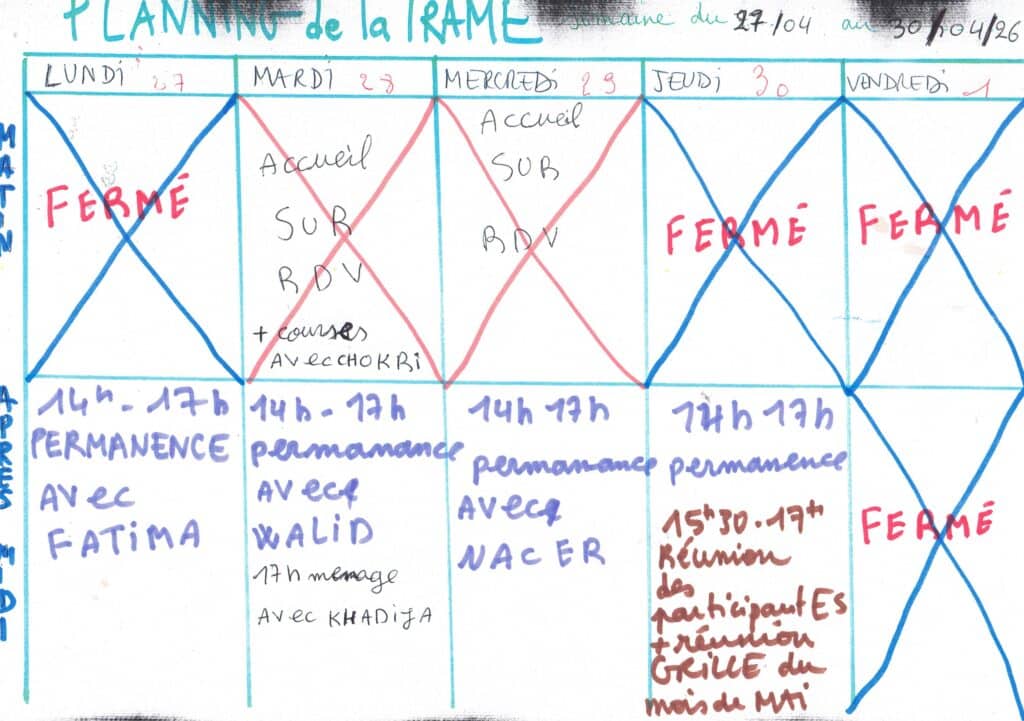 PLANNING de la TRAME semaine du 27/04 au 30/04/26
LUNDI 27
MARDI 28
MERCREDI 29
JEUDI 30
VENDREDI 1
MATIN
FERMÉ
Accueil
SUR
RDV
+ courses
AVec CHOKRI
Accueil
SUR
RDV
FERMÉ
FERMÉ
APRES MIDI
14h - 17h
PERMANENCE
AVec
FATIMA
14h - 17h
permanance
AVec
WALID
17h menage
AVec KHADIJA
14h 17h
permanance
AVec
NACER
14h 17h
permanence
15h30 - 17h
Réunion
des
participantES
+ réunion
GRILLE du
mois de MAI
FERMÉ